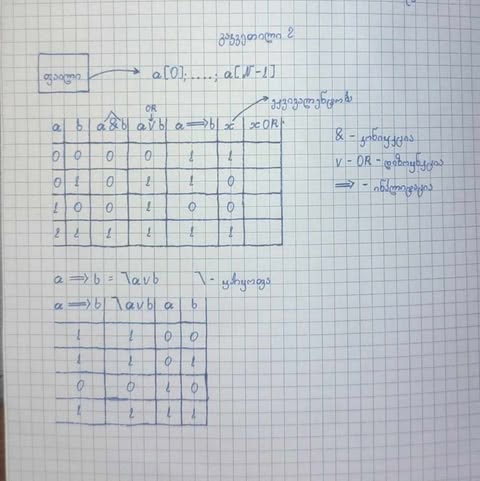 გაკვეთილი 2
ფაილი → a[0]; ....; a[N-1]
OR
ექვივალენტობა
a b a&b a∨b a⟹b x xOR
0 0 0 0 1 1
0 1 0 1 1 0
1 0 0 1 0 0
1 1 1 1 1 1
& - კონიუქცია
v - OR - დიზიუნქცია
⟹ - იმპლიკაცია
a ⟹ b = ⅂a∨b \ - უარყოფა
a ⟹ b ⅂a∨b a b
1 1 0 0
1 1 0 1
0 0 1 0
1 1 1 1